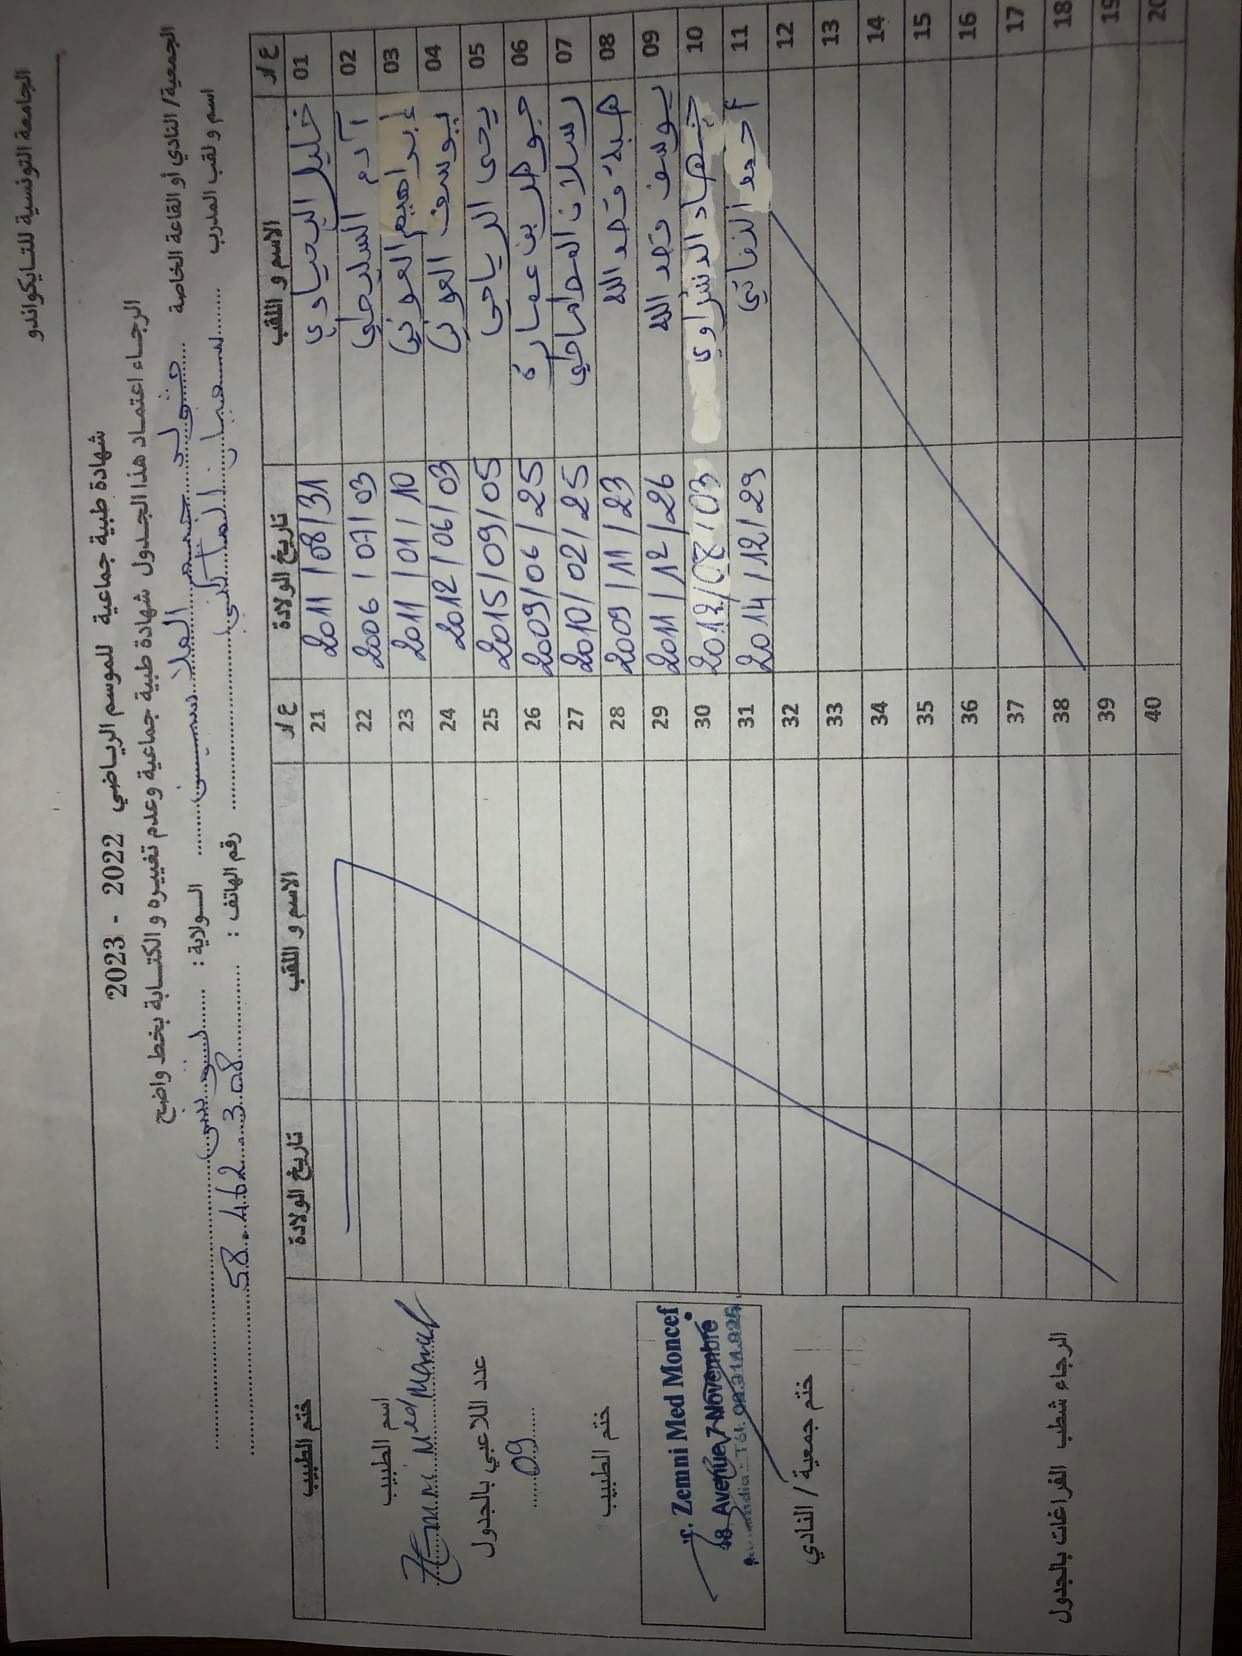 الجامعة التونسية للتايكواندو
شهادة طبية جماعية للموسم الرياضي 2022 - 2023
الرجاء اعتماد هذا الجدول شهادة طبية جماعية وعدم تغييره و الكتابة بخط واضح
الجمعية/ النادي أو القاعة الخاصة الولاية : تونس
اسم و لقب المدرب رقم الهاتف : 58.462.308
ع/ر الاسم و اللقب تاريخ الولادة ع/ر الاسم و اللقب تاريخ الولادة ختم الطبيب
01 خليل 2011/08/31 21
02 آدم 2006/07/03 22
03 إبراهيم العوني 2011/01/10 23
04 يوسف العوني 2012/06/03 24
05 يحي الرياحي 2015/09/05 25
06 جوهر بن عمارة 2009/06/25 26
07 رسلان 2010/02/25 27
08 هبة فتح الله 2009/11/23 28
09 يوسف فتح الله 2011/12/26 29
10 جهاد 2012/08/03 30
11 أحمد 2014/12/29 31
12 32
13 33
14 34
15 35
16 36
17 37
18 38
19 39
20 40
اسم الطبيب
Zemni Med Moncef
عدد اللاعبي بالجدول
09
ختم الطبيب
Zemni Med Moncef
48 Avenue 7 Novembre
ختم جمعية / النادي
الرجاء شطب الفراغات بالجدول